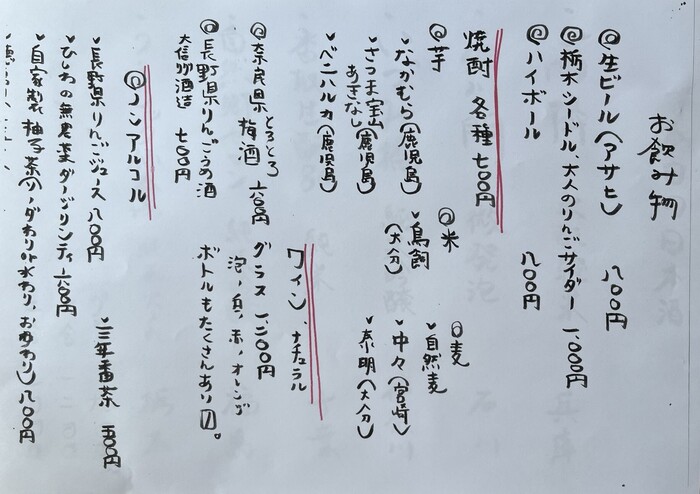 お飲み物
◎生ビール(アサヒ) 八〇〇円
◎栃木シードル、大人のりんごサイダー 一、〇〇〇円
◎ハイボール 八〇〇円
焼酎 各種 七〇〇円
◎芋
なかむら(鹿児島)
さつま宝山(鹿児島)
あきなし(鹿児島)
ベニハルカ(鹿児島)
◎米
鳥飼
(大分)
◎麦
自然麦
中々(宮崎)
泰明(大分)
◎奈良県 とろとろ梅酒 六〇〇円
◎長野県りんごうめ酒
大信州酒造 七〇〇円
ワイン、ナチュラル
グラス 一二〇〇円
泡、白、赤、オレンジ
ボトルもたくさんあり〼。
◎ノンアルコール
長野県りんごジュース 八〇〇円
ひしわの無農薬ダージリンティ 六〇〇円
自家製 柚子茶(ソーダわり、水わり、お湯わり) 八〇〇円
三年番茶 五〇〇円